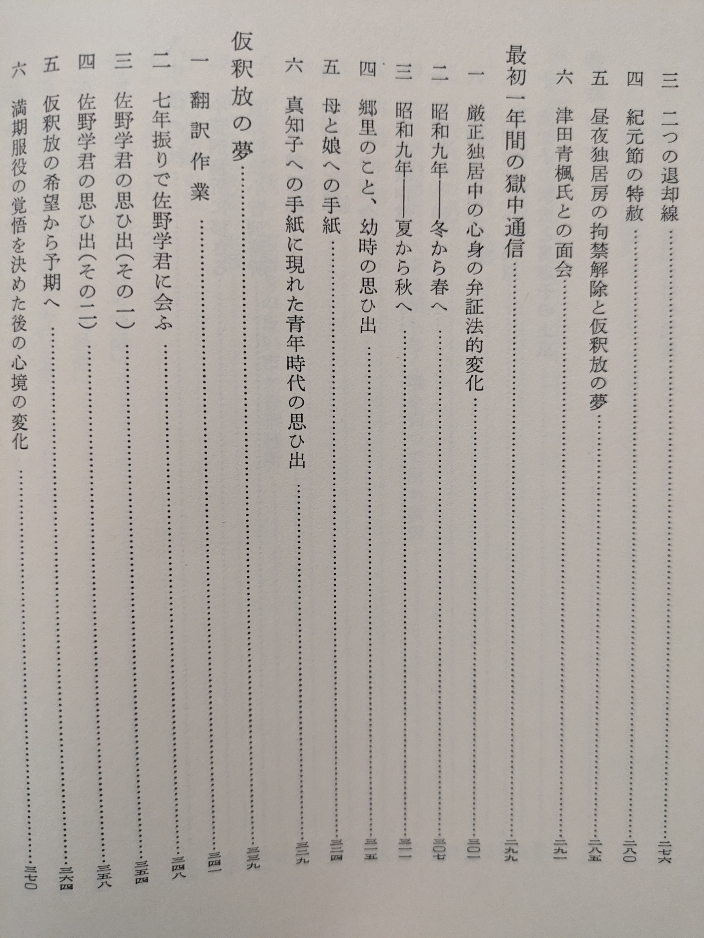 三 二つの退却線……二七六
四 紀元節の特赦……二八〇
五 昼夜独居房の拘禁解除と仮釈放の夢……二八五
六 津田青楓氏との面会……二九一
最初一年間の獄中通信……二九九
一 厳正独居中の心身の弁証法的変化……三〇一
二 昭和九年――冬から春へ……三〇七
三 昭和九年――夏から秋へ……三一一
四 郷里のこと、幼時の思ひ出……三一五
五 母と娘への手紙……三二四
六 真知子への手紙に現れた青年時代の思ひ出……三二九
仮釈放の夢……三三九
一 翻訳作業……三四一
二 七年振りで佐野学君に会ふ……三四八
三 佐野学君の思ひ出(その一)……三五四
四 佐野学君の思ひ出(その二)……三五八
五 仮釈放の希望から予期へ……三六四
六 満期服役の覚悟を決めた後の心境の変化……三七〇